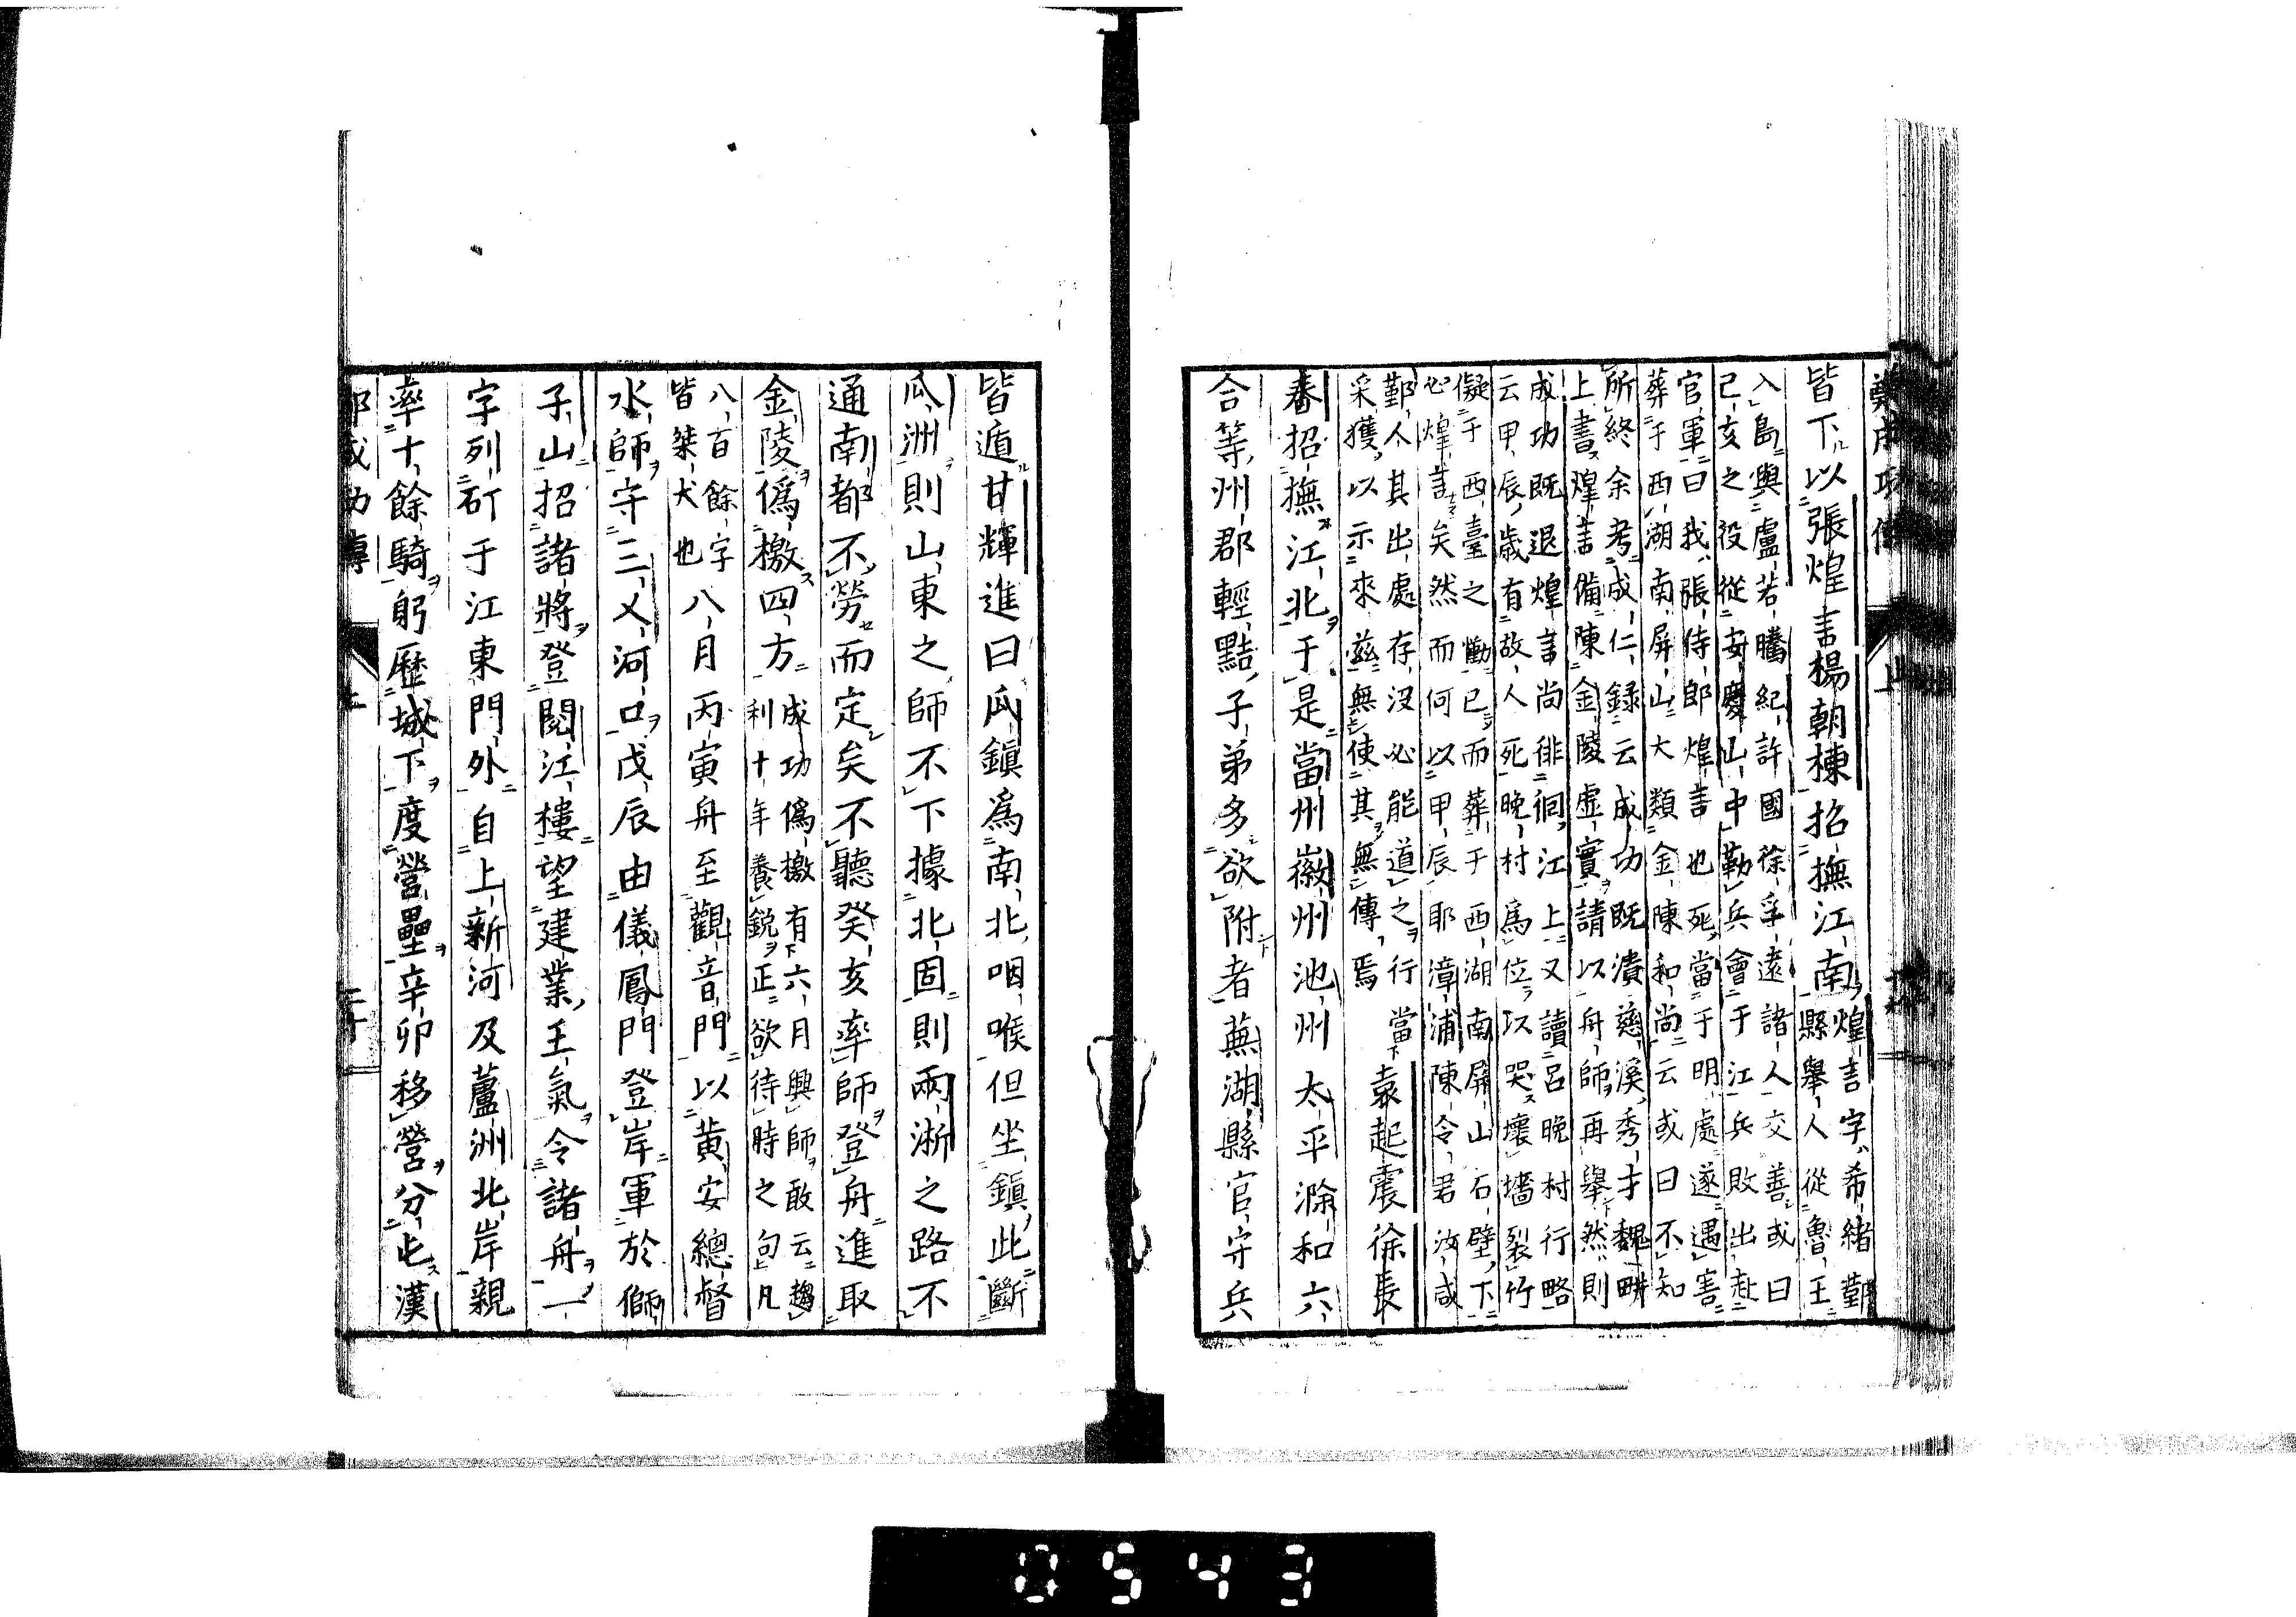 鄭成功傳
上
皆下以張煌言楊朝棟招撫江南煌言字希緒鄞
縣舉人從魯王
入島與盧若騰紀許國徐孚遠諸人交善或曰
己亥之役從安慶山中勒兵會于江兵敗出赴
官軍曰我張侍郎煌言也死當于明處遂遇害
葬于西湖南屏山大類金陳和尚云或曰不知
所終余考成仁録云成功既潰慈溪秀才魏畊
上書煌言備陳金陵虛實請以舟師再舉然則
成功既退煌言尚徘徊江上又讀呂晚村行略
云甲辰歳有故人死晚村爲位以哭壞墻裂竹
儗于西臺之慟已而葬于西湖南屏山石壁下
必煌言矣然而何以甲辰耶漳浦陳令君汝咸
鄞人其出處存沒必能道之行當
采獲以示來茲無使其無傳焉
袁起震徐長
春招撫江北于是當州徽州池州太平滁和六
合等州郡輕黠子弟多欲附者蕪湖縣官守兵
皆遁甘輝進曰瓜鎭爲南北咽喉但坐鎭此斷
瓜洲則山東之師不下據北固則兩淅之路不
通南都不勞而定矣不聽癸亥率師登舟進取
金陵僞檄四方成功僞檄有六月興師敢云趨
利十年養鋭正欲待時之句凡
八百餘字
皆桀犬也
八月丙寅舟至觀音門以黄安總督
水師守三乂河口戊辰由儀鳳門登岸軍於獅
子山招諸將登閱江樓望建業王氣令諸舟一
字列矴于江東門外自上新河及蘆洲北岸親
率十餘騎躬歷城下度營壘辛卯移營分屯漢